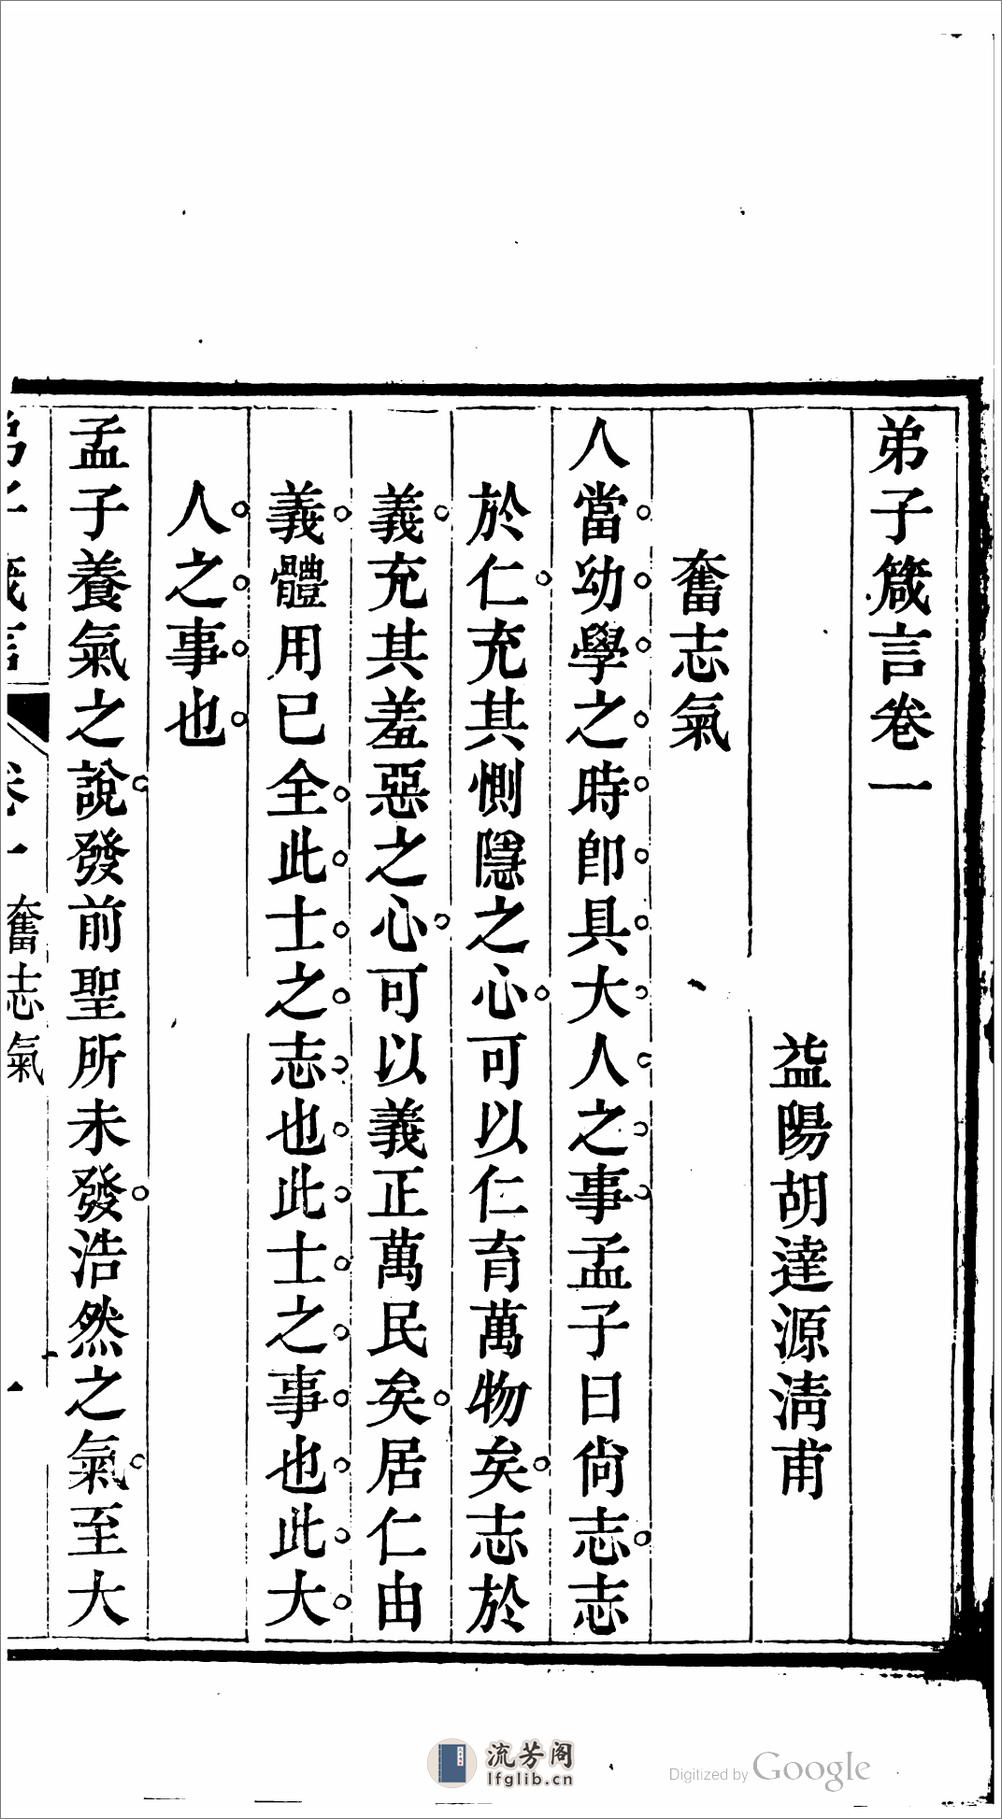 弟子箴言卷一
益陽胡達源清甫
奮志氣
人當幼學之時即具大人之事孟子曰尙志志
於仁充其惻隱之心可以仁育萬物矣志於
義充其羞惡之心可以義正萬民矣居仁由
義體用已全此士之志也此士之事也此大
人之事也
孟子養氣之說發前聖所未發浩然之氣至大
弟子箴言 卷一 奮志氣 一
流芳阁
lfglib.cn
Digitized by Google